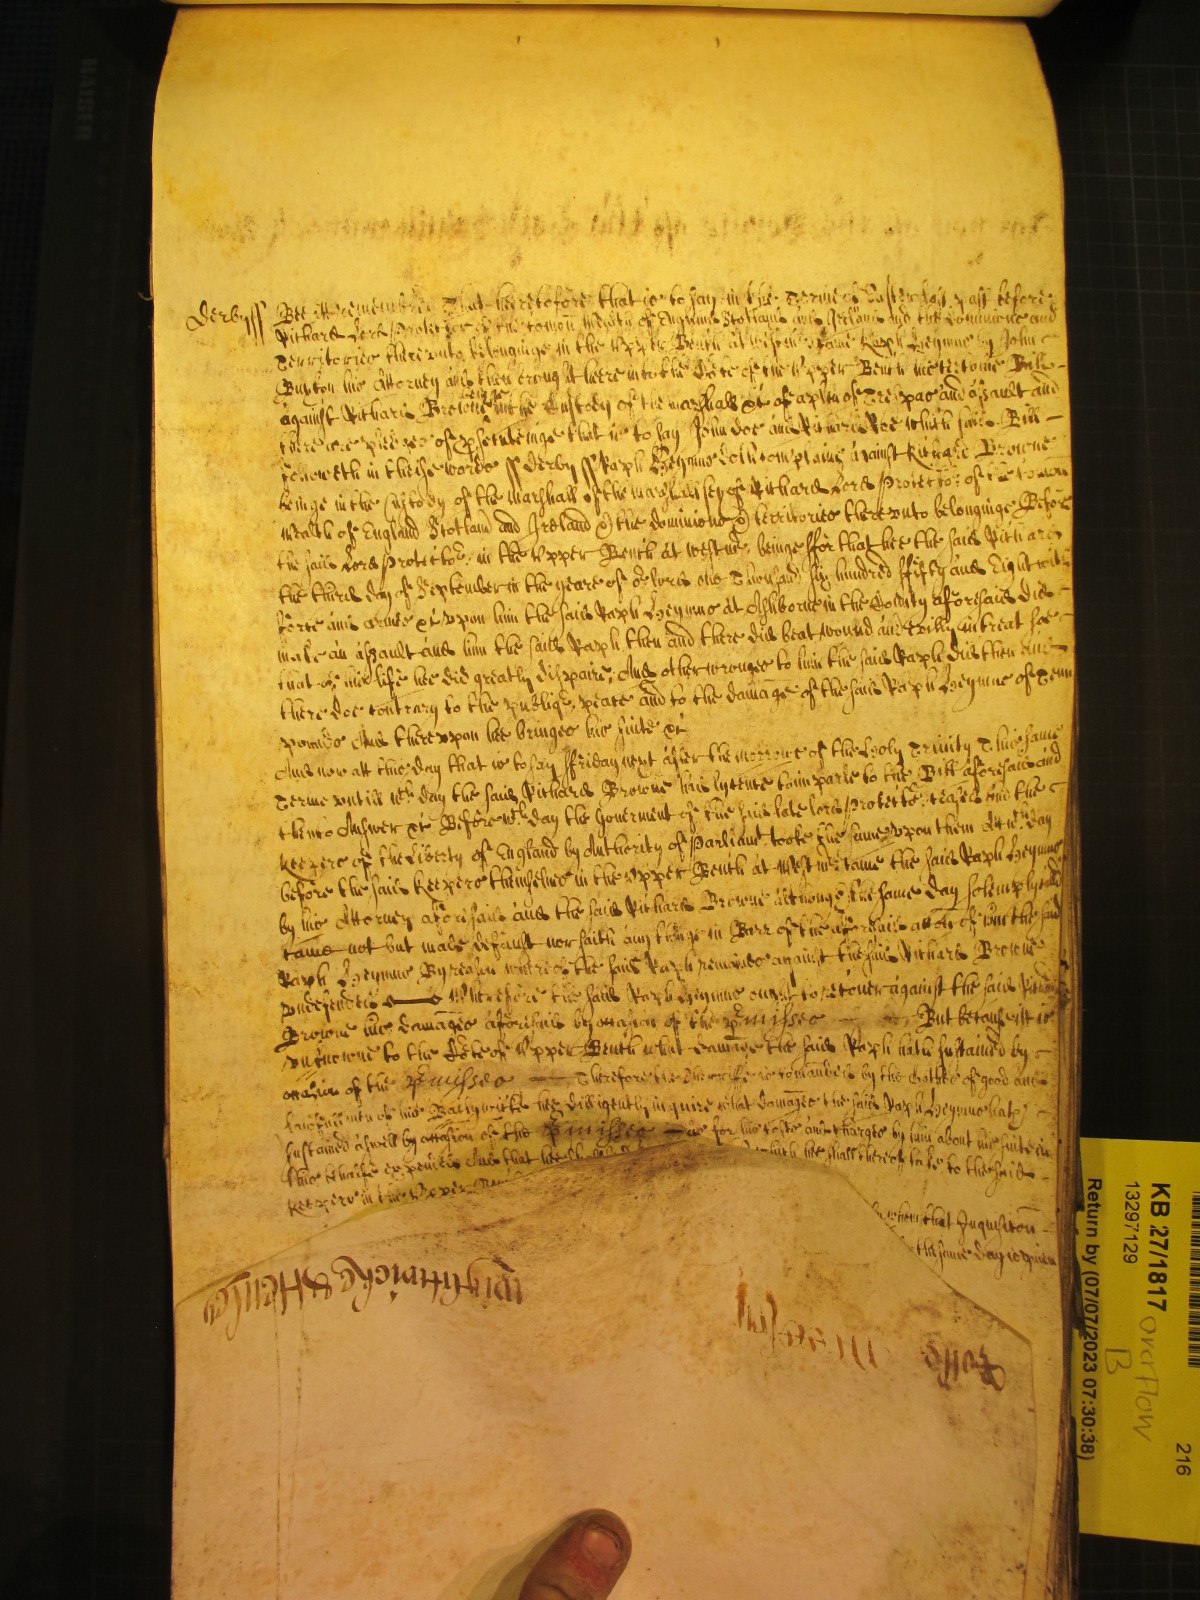 Derby ss Bee itt remembred That heretofore that is to say in the Terme of Easter last past before
Richard Lord Protector of the Comon Wealth of England Scotland and Ireland and the Dominions and
Territories thereunto belonginge in the Upper Bench at Westmr came Raph Heyme by John
Buxton his Attorney and then brought here into the Cort of the Upper Bench his certeine Bill
against Richard Browne beinge in the Custody of the marshall &c of a plea of Trespas and assault and
there are pledges of psecutinge that is to say John Doe and Richard Roe which said Bill
followeth in these words ss Derby ss Raph Heyme doth complaine against Richard Browne
beinge in the Custody of the marshall of the marshalsey of Richard Lord Protector of the Comon
Wealth of England Scotland and Ireland & the dominions & territories thereunto belonginge Before
the said Lord Protector in the Upper Bench at Westmr beinge ffor that hee the said Richard
the third day of September in the yeare of or Lord one Thousand six hundred ffifty and Eight with
force and armes &c upon him the said Raph Heyme at Ashborne in the County aforesaid did
make an assault and him the said Raph then and there did beat wound and evilly intreat soe
that of his life hee did greatly dispaire And other wronges to him the said Raph did then and
there doe contrary to the publiq peace and to the damage of the said Raph Heyme of Tenn
pownds And thereupon hee bringes his suite &c
And now att this day that is to say ffriday next after the morrowe of the Holy Trinity This same
Terme untill wch day the said Richard Browne had lycence to imparle to the Bill aforesaid and
then to Answer &c Before wch day the Goverment of the said late Lord Protector ceased and the
Keepers of the Liberty of England by Authority of Parliamt tooke the same upon them Att wch day
before the said Keepers themselves in the Upper Bench at Westmr came the said Raph Heyme
by his Attorney aforesaid and the said Richard Browne although the same day solemply
came not but made default nor saith any thinge in Barr of the aforesaid accon of him the said
Raph Heyme By reason whereof the said Raph remaines against the said Richard Browne
undefended Wherefore the said Raph Heyme ought to recover against the said Richard
Browne his damages aforesaid by occasion of the pmisses But because it is
unknowne to the Cort of Upper Bench what damage the said Raph hath sustained by
occasion of the pmisses Therefore the Sherriffe is comanded by the Oathes of good and
lawfull men of his Baylywicke hee diligently inquire what damages the said Raph Heyme hath
sustained aswell by occasion of the pmisses as for his costs and charges by him about his suite in
this behalfe expended And that hee which hee shall thereof take to the said
Keepers in the Upper Bench
whom that Inquisicon
the same day is given
Rolle
KB 27/1817 overflow
B
13297129
Return by (07/07/2023 07:30:38)
216